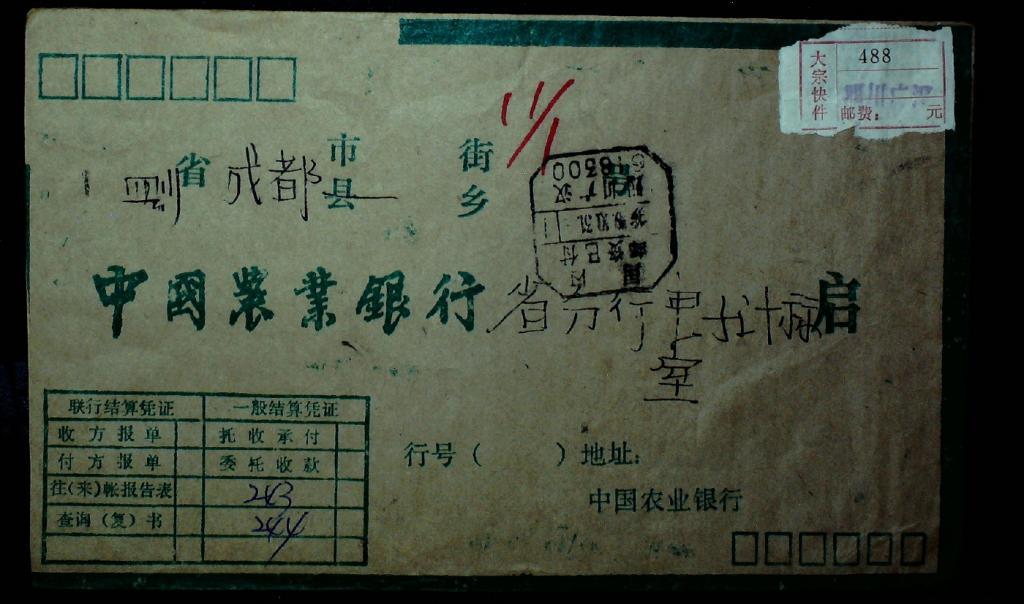 大宗快件
488
邮费： 元
11/1
四川省成都市县 街乡
618300
四川广汉
国内
邮资已付
中國農業銀行省分行电子计标室启
联行结算凭证 一般结算凭证
收方报单 托收承付
付方报单 委托收款
往(来)帐报告表 243
查询(复)书 244
行号( )地址：
中国农业银行